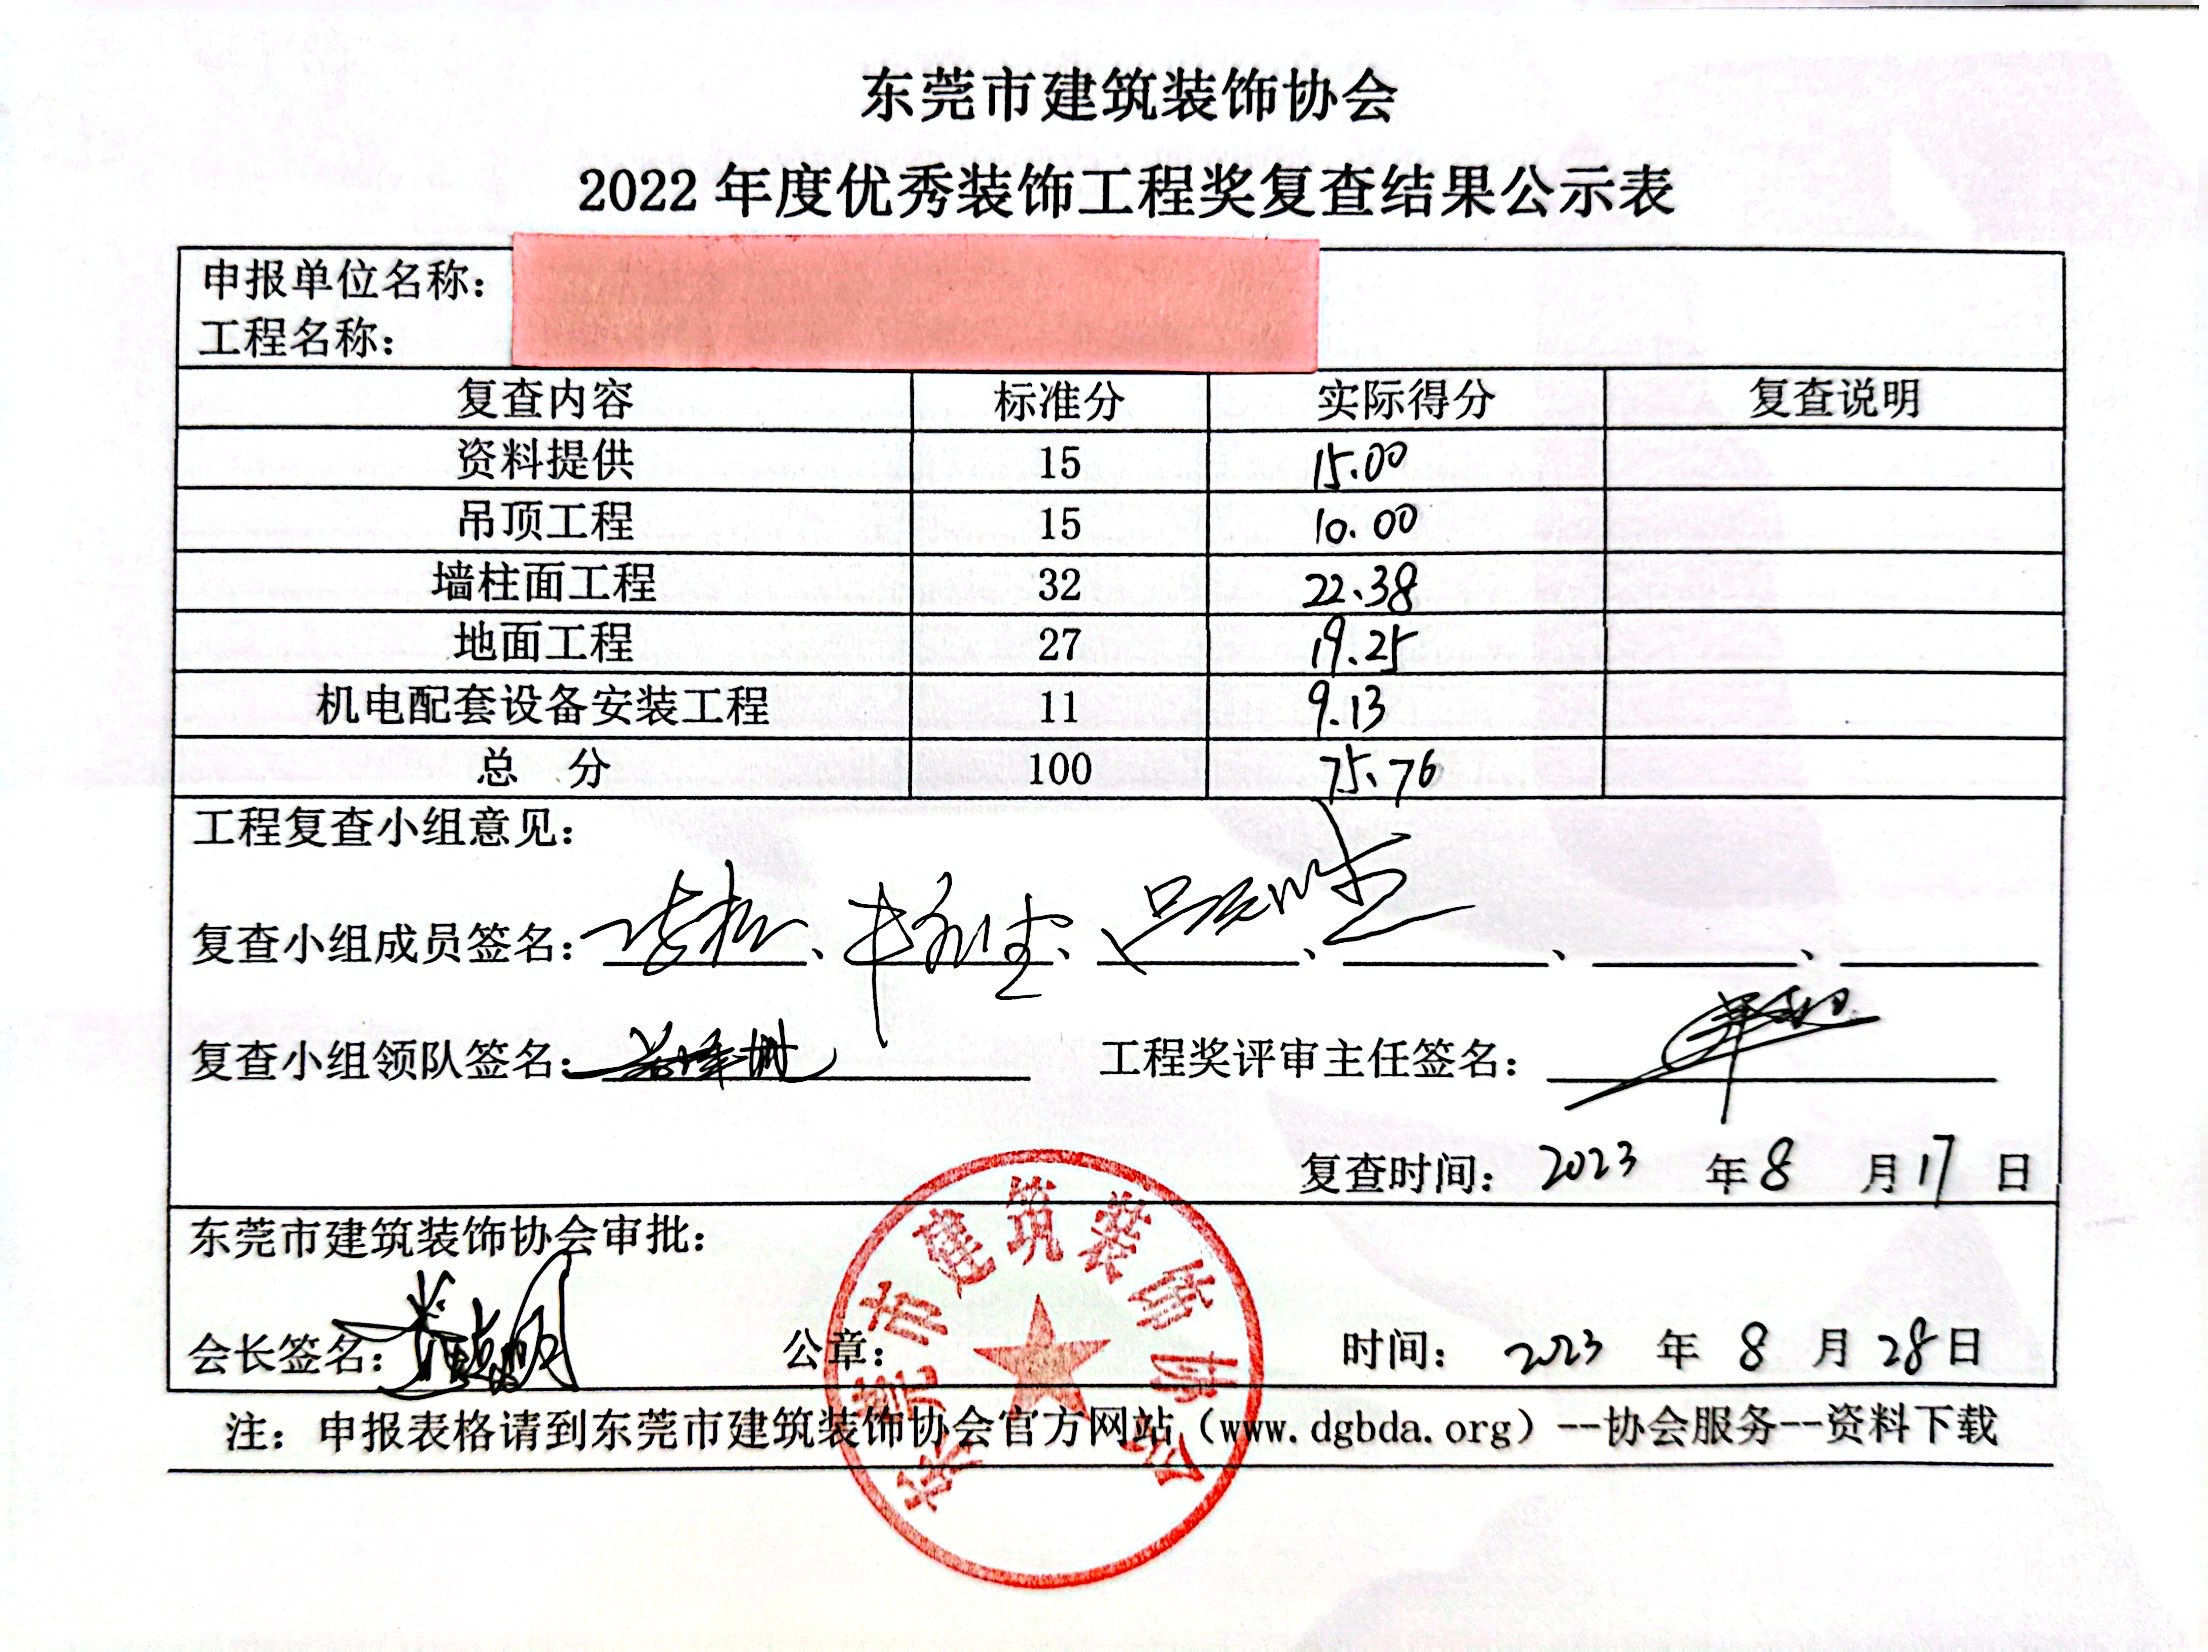 东莞市建筑装饰协会
2022年度优秀装饰工程奖复查结果公示表
申报单位名称：
工程名称：
复查内容 标准分 实际得分 复查说明
资料提供 15 15.00
吊顶工程 15 10.00
墙柱面工程 32 22.38
地面工程 27 19.25
机电配套设备安装工程 11 9.13
总 分 100 75.76
工程复查小组意见：
复查小组成员签名：
复查小组领队签名： 工程奖评审主任签名：
复查时间： 2023 年 8 月 17 日
东莞市建筑装饰协会审批：
会长签名： 公章： 时间： 2023 年 8 月 28 日
东莞市建筑装饰协会
注：申报表格请到东莞市建筑装饰协会官方网站（www.dgbda.org）--协会服务--资料下载